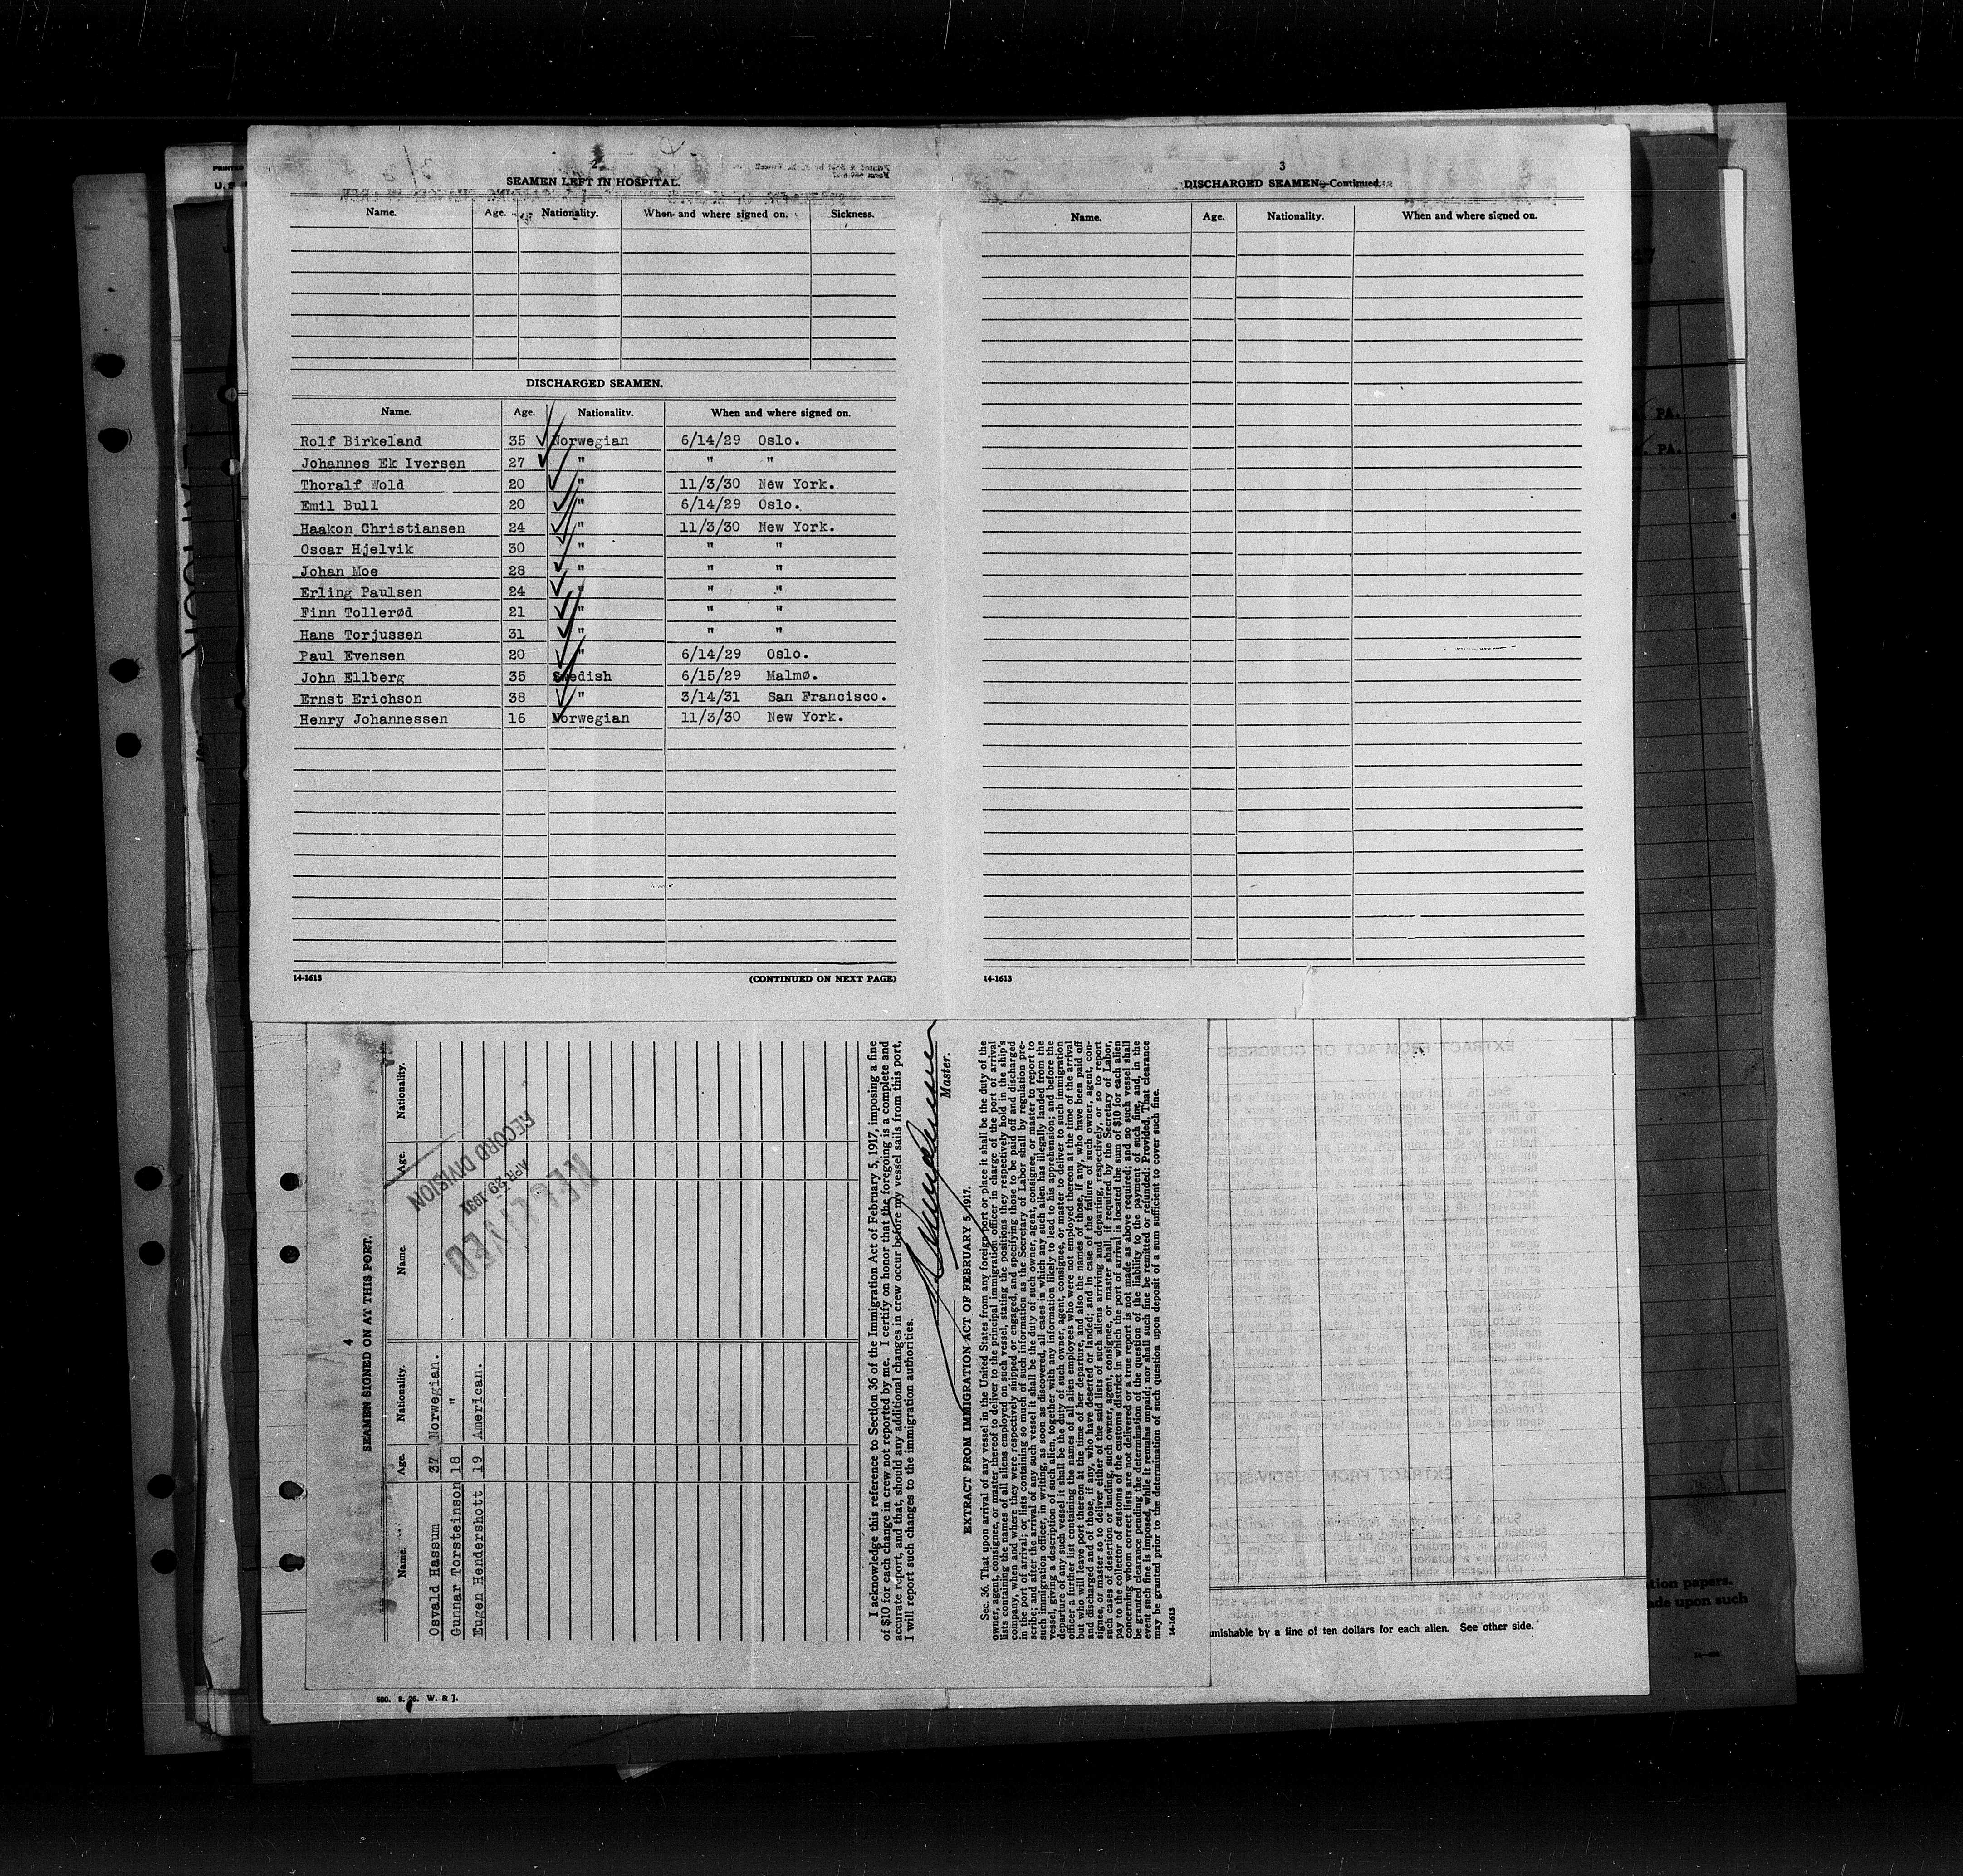 2
SEAMEN LEFT IN HOSPITAL.
Name. Age. Nationality. When and where signed on. Sickness.
DISCHARGED SEAMEN.
Name. Age. Nationality. When and where signed on.
Rolf Birkeland 35 Norwegian 6/14/29 Oslo.
Johannes Ek Iversen 27 " " "
Thoralf Wold 20 " 11/3/30 New York.
Emil Bull 20 " 6/14/29 Oslo.
Haakon Christiansen 24 " 11/3/30 New York.
Oscar Hjelvik 30 " " "
Johan Moe 28 " " "
Erling Paulsen 24 " " "
Finn Tollerød 21 " " "
Hans Torjussen 31 " " "
Paul Evensen 20 " 6/14/29 Oslo.
John Ellberg 35 Swedish 6/15/29 Malmø.
Ernst Erichson 38 " 3/14/31 San Francisco.
Henry Johannessen 16 Norwegian 11/3/30 New York.
14-1613 (CONTINUED ON NEXT PAGE)
3
DISCHARGED SEAMEN—Continued.
Name. Age. Nationality. When and where signed on.
14-1613
4
SEAMEN SIGNED ON AT THIS PORT.
Name. Age. Nationality. Name. Age. Nationality.
Osvald Hassum 37 Norwegian.
Gunnar Torsteinson 18 "
Eugen Hendershott 19 American.
RECEIVED
APR 29 1931
RECORD DIVISION
I acknowledge this reference to Section 36 of the Immigration Act of February 5, 1917, imposing a fine
of $10 for each change in crew not reported by me. I certify on honor that the foregoing is a complete and
accurate report, and that, should any additional changes in crew occur before my vessel sails from this port,
I will report such changes to the immigration authorities.
Master.
EXTRACT FROM IMMIGRATION ACT OF FEBRUARY 5, 1917.
Sec. 36. That upon arrival of any vessel in the United States from any foreign port or place it shall be the duty of the
owner, agent, consignee, or master thereof to deliver to the principal immigration officer in charge of the port of arrival
lists containing the names of all aliens employed on such vessel, stating the positions they respectively hold in the ship's
company, when and where they were respectively shipped or engaged, and specifying those to be paid off and discharged
in the port of arrival; or lists containing so much of such information as the Secretary of Labor shall by regulation pre-
scribe; and after the arrival of any such vessel it shall be the duty of such owner, agent, consignee, or master to report to
such immigration officer, in writing, as soon as discovered, all cases in which any such alien has illegally landed from the
vessel, giving a description of such alien, together with any information likely to lead to his apprehension; and before the
departure of any such vessel it shall be the duty of such owner, agent, consignee, or master to deliver to such immigration
officer a further list containing the names of all alien employees who were not employed thereon at the time of the arrival
but who will leave port thereon at the time of her departure, and also the names of those, if any, who have been paid off
and discharged and of those, if any, who have deserted or landed; and in case of the failure of such owner, agent, con-
signee, or master so to deliver either of the said lists of such aliens arriving and departing, respectively, or so to report
such cases of desertion or landing, such owner, agent, consignee, or master shall, if required by the Secretary of Labor,
pay to the collector of customs of the customs district in which the port of arrival is located the sum of $10 for each alien
concerning whom correct lists are not delivered or a true report is not made as above required; and no such vessel shall
be granted clearance pending the determination of the question of the liability to the payment of such fine, and, in the
event such fine is imposed, while it remains unpaid; nor shall such fine be remitted or refunded: Provided, That clearance
may be granted prior to the determination of such question upon deposit of a sum sufficient to cover such fine.
14-1613
unishable by a fine of ten dollars for each alien. See other side.
500. 8. 26. W. & J.
PA.
PA.
tion papers.
ade upon such
PRINTED